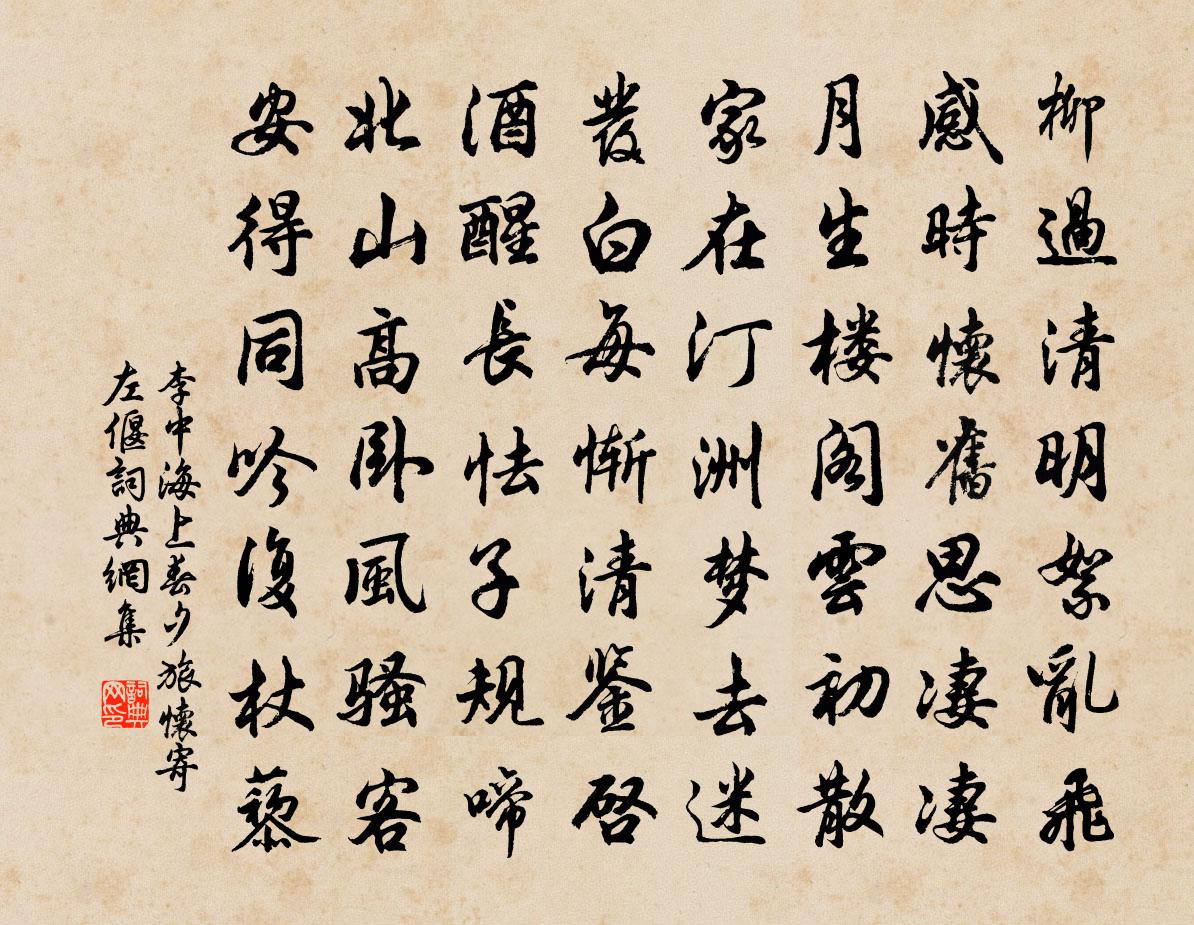 柳過清明絮亂飛
感時懷舊思淒淒
月生楼阁雲初散
家在汀洲梦去迷
發白每慚清鉴启
酒醒長怯子規啼
北山高卧風骚客
安得同吟復杖藜
李中海上春夕旅懷寄
左偃詞典網集
詞典网印